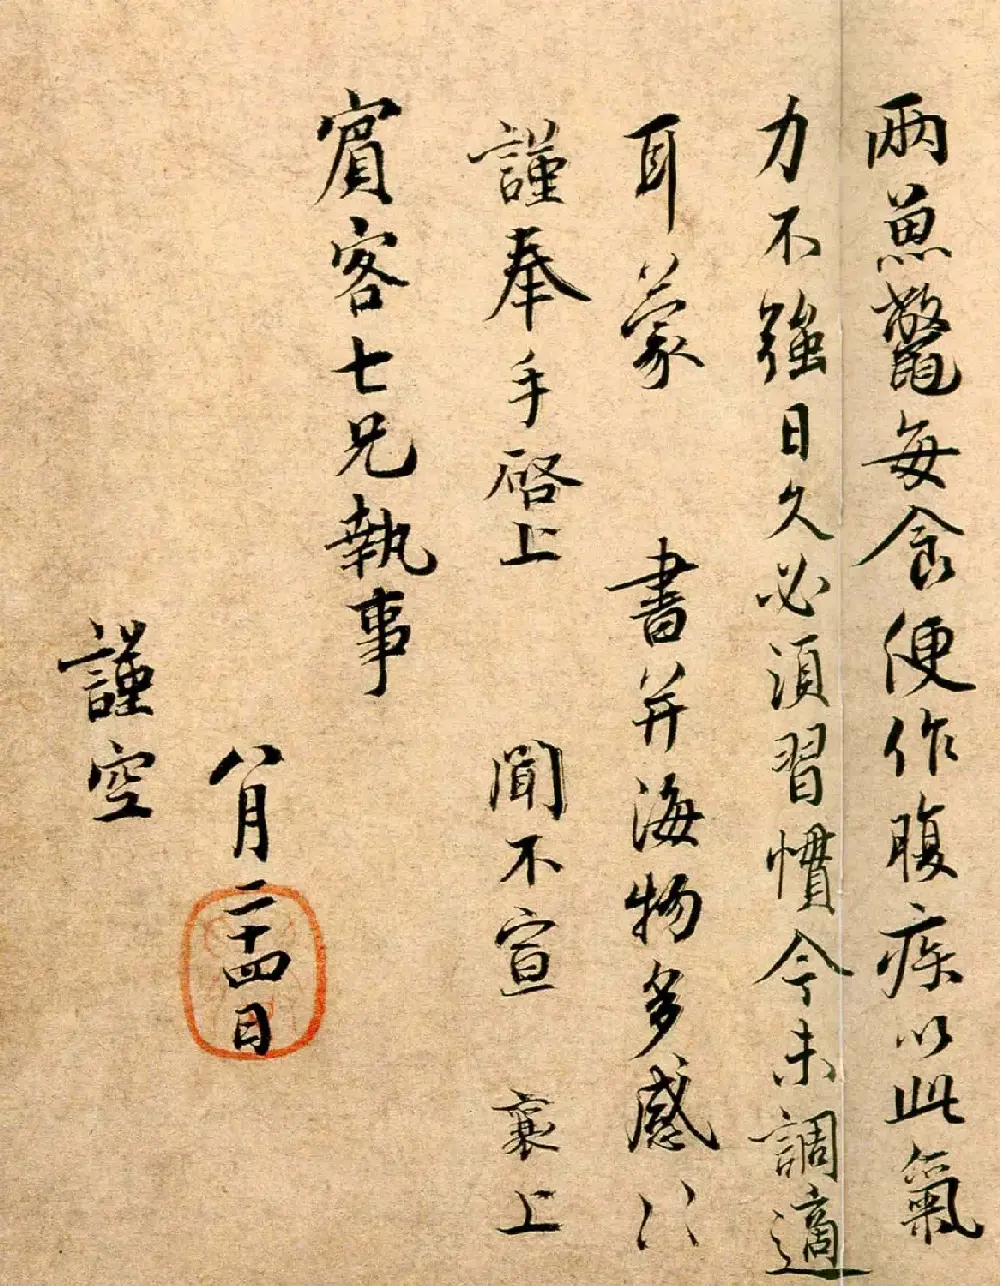 兩魚鼈每食便作腹疾以此氣
力不強日久必須習慣今未調適
耳蒙
書并海物多感〻
謹奉手啓上
聞不宣 襄上
賓客七兄執事
八月二十四日
謹空